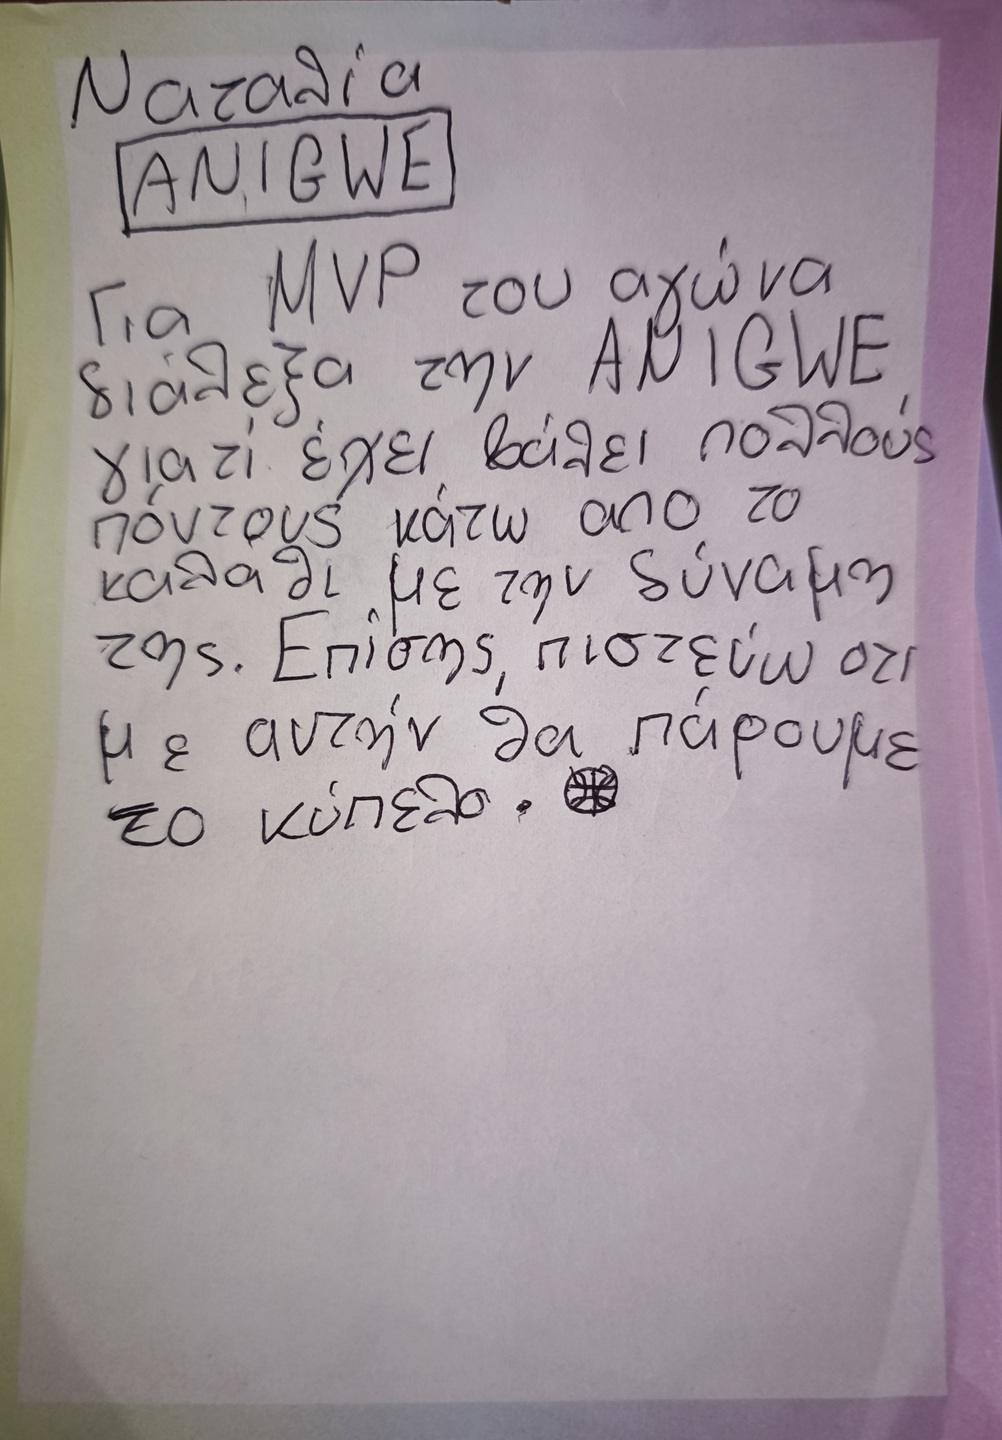 Ναταλία
ANIGWE
Για MVP του αγώνα
διάλεξα την ANIGWE
γιατί έχει βάλει πολλούς
πόντους κάτω απο το
καλαθι με την δύναμη
της. Επίσης, πιστεύω οτι
με αυτήν θα πάρουμε
το κύπελο.